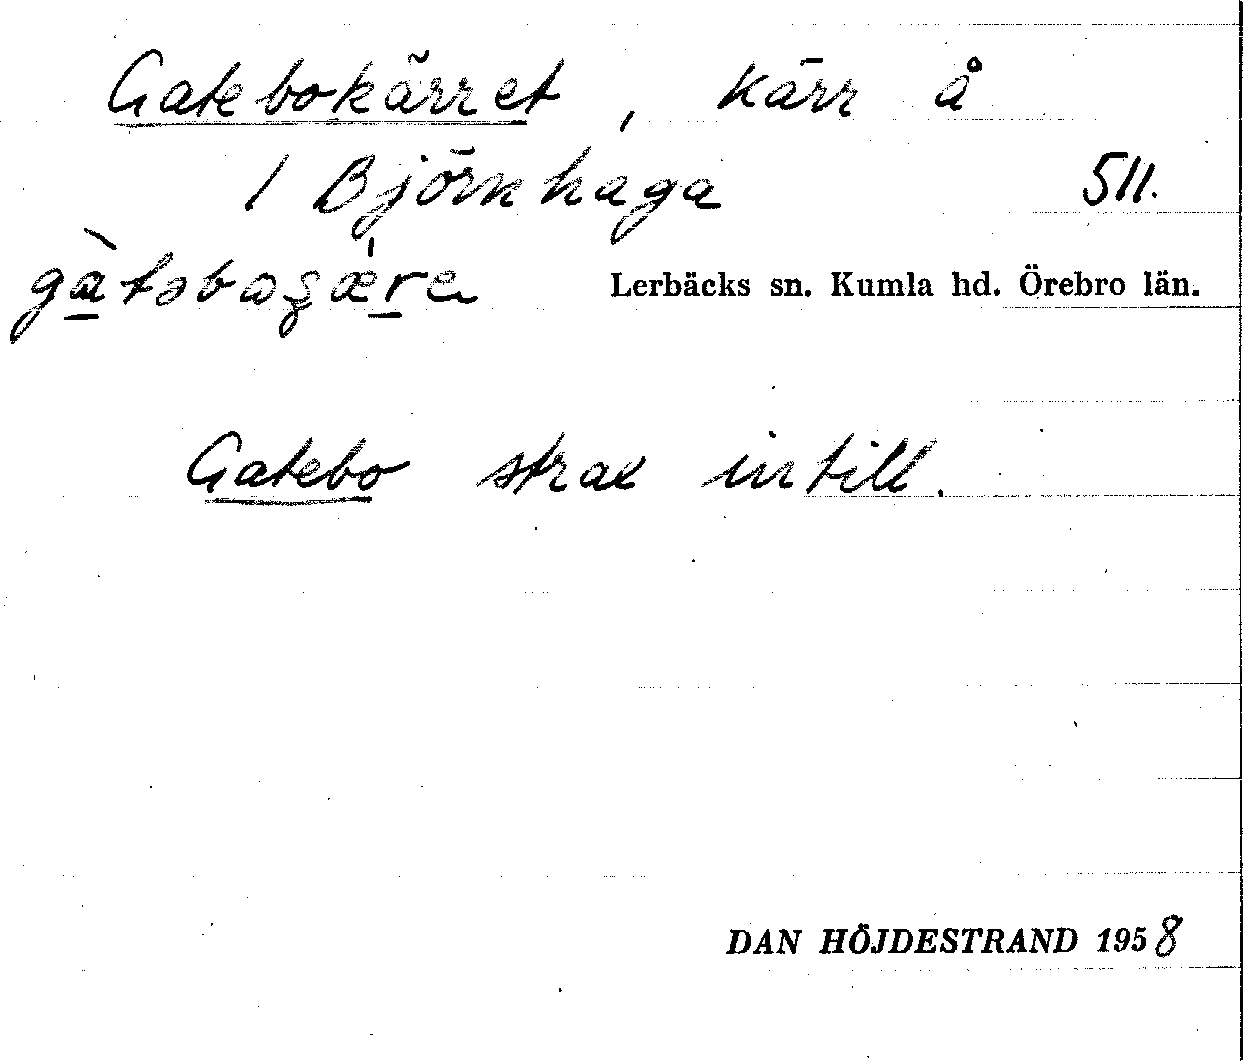 Gatebokärret, kärr å
1 Björnhaga 511.
gàtəboʂæ̀re Lerbäcks sn. Kumla hd. Örebro län.
Gatebo strax intill.
DAN HÖJDESTRAND 1958